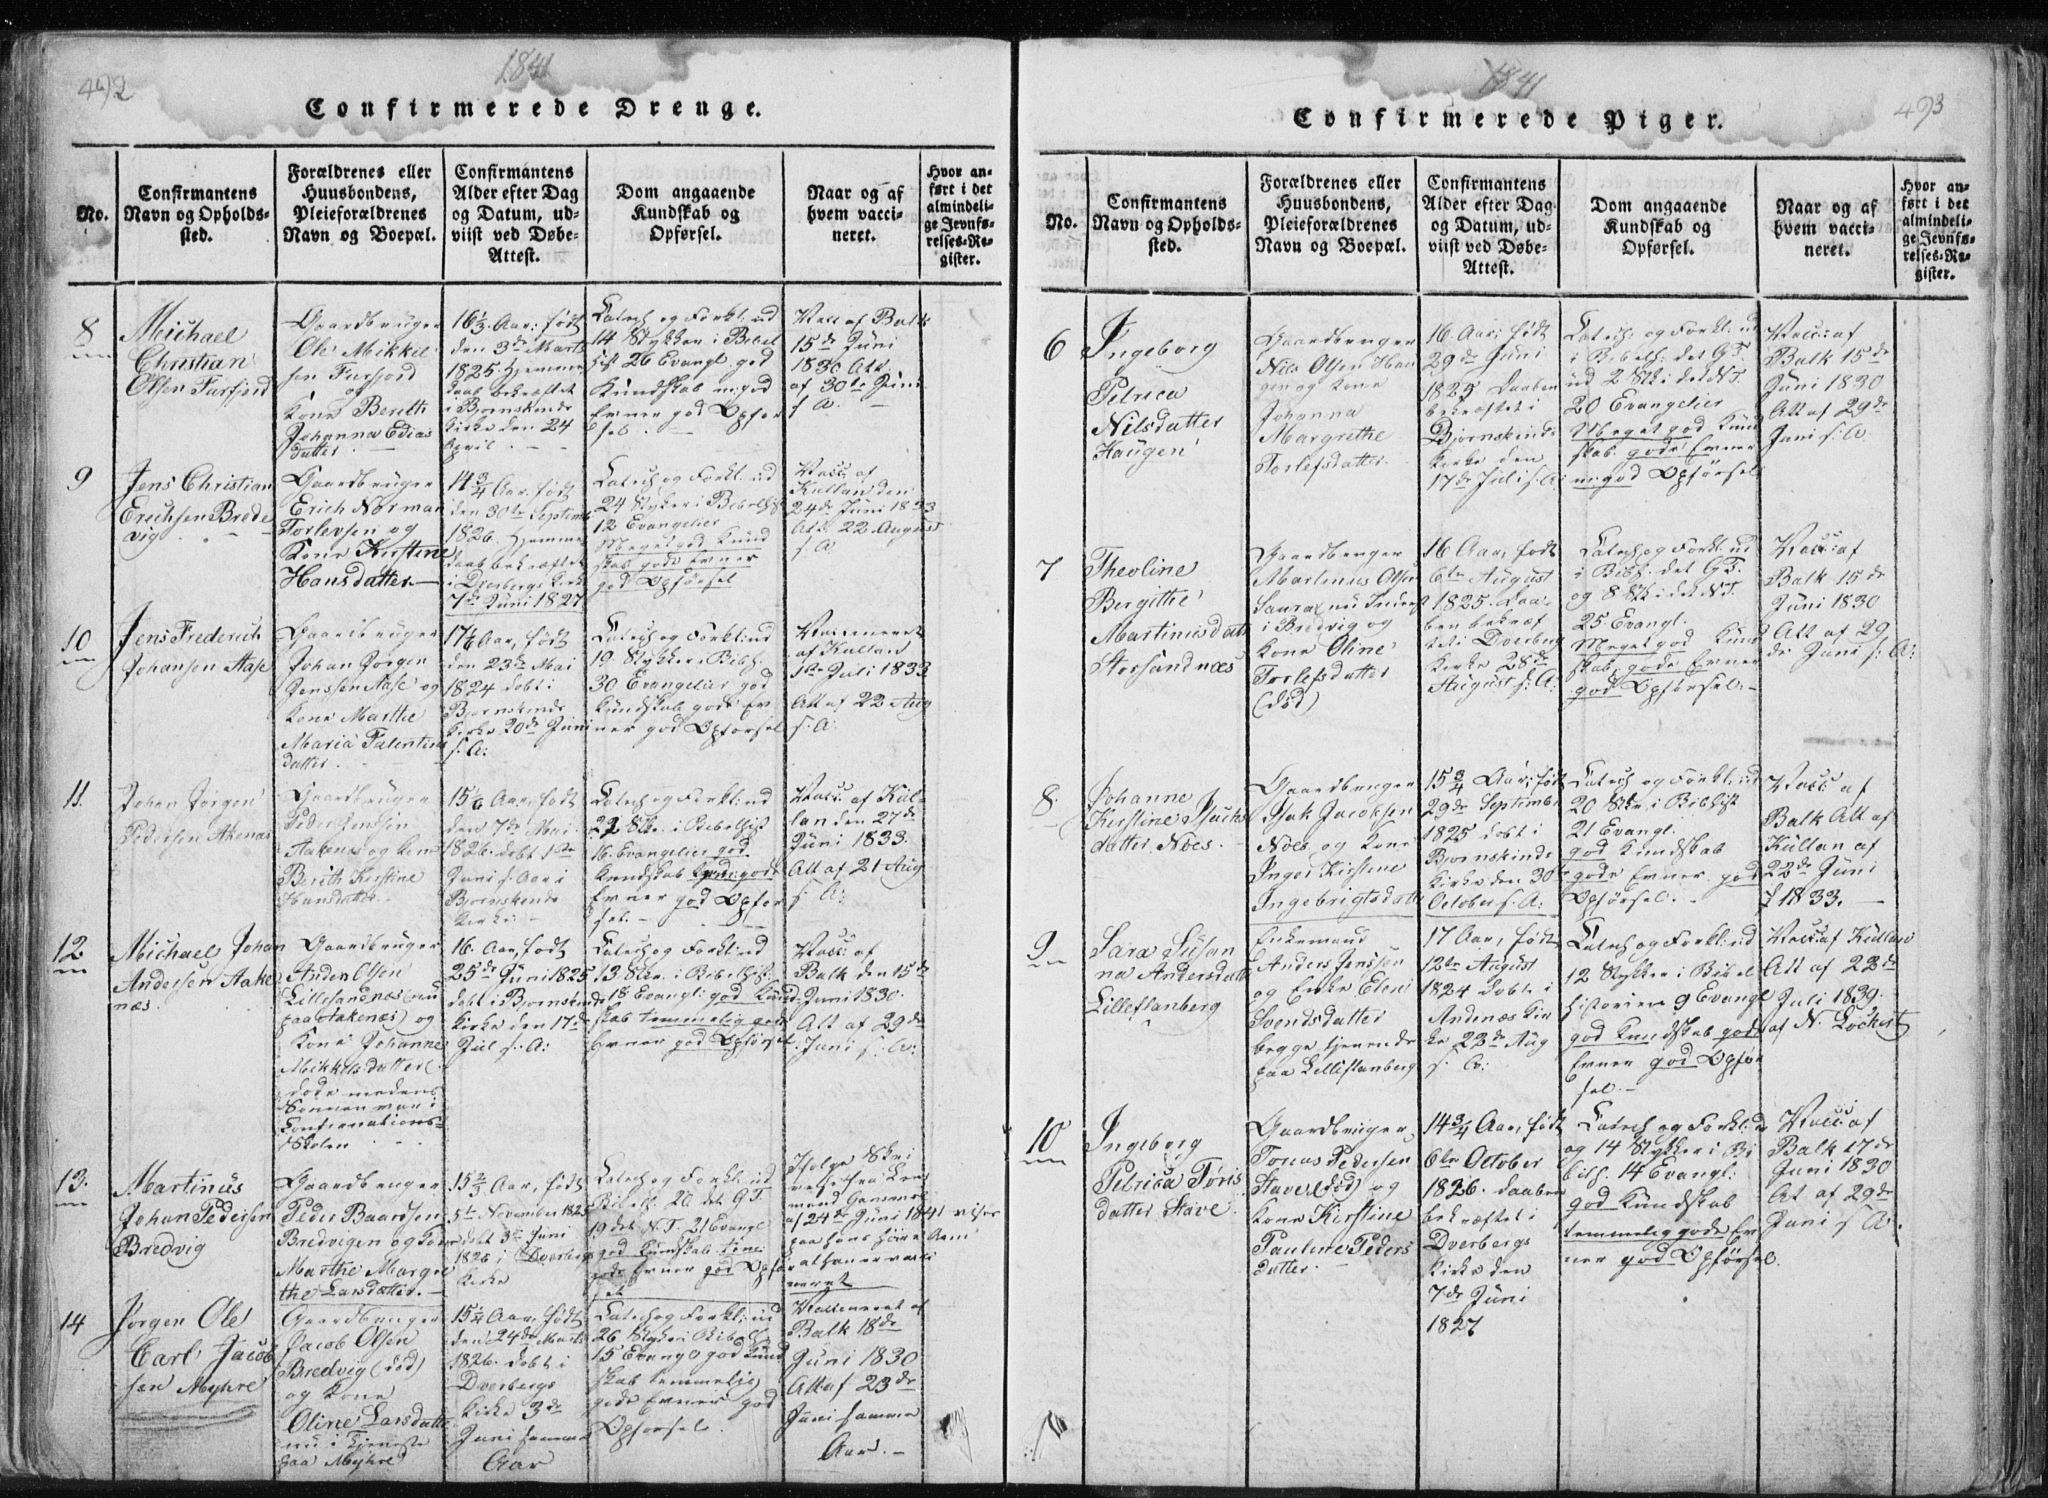 492
1841
Confirmerede Drenge.
No.
Confirmantens
Navn og Opholds-
sted.
Forældrenes eller
Huusbondens,
Pleieforældrenes
Navn og Boepæl.
Confirmantens
Alder efter Dag
og Datum, ud-
viist ved Døbe-
Attest.
Dom angaaende
Kundskab og
Opførsel.
Naar og af
hvem vacci-
neret.
Hvor an-
ført i det
almindeli-
ge Jevnfø-
relses-Re-
gister.
8
Michael
Christian
Olsen Furfjord
Gaardbruger
Ole Mikkel
sen Furfjord
og
Kone Berith
Johanna Edias
datter.
16 1/3 Aar: født
den 3de Marts
1825. Hjemme
daab bekræftet
i Bjornskinds
Kirke den 24
April.
Catech og Forkl: ud
14 Stykker i Bibel
hist 26 Evangl. god
Kundskab m: god
Evner god Opfør
sel.
Vacc af Balk
15de Juni
1830 Att
af 30te Juni
s. A.
9
Jens Christian
Erichsen Brede
vig
Gaardbruger
Erich Norman
Torlevsen og
Kone Kirstine
Hansdatter.
14 3/4 Aar. født
den 30te Septemb
1826. Hjemme
daab bekræftet
i Dverbergs Kirke
7de Juni 1827
Catech og Forkl: ud
24 Stykker i Bibelhist
12 Evangelier
Meget god Kund
skab gode Evner
god Opførsel
Vacc. af
Kullan den
24de Juni 1833
Att. 22 August
s. A.
10
Jens Frederich
Johansen Aase
Gaardbruger
Johan Jørgen
Jenssen Aase og
Kone Marthe
Maria Falentins
datter.
17 1/6 Aar, født
den 23de Mai
1824 dobt i
Bjornskinds
Kirke 20de Juni
s. A:
Catech og Forkl: ud
19 Stykker i Bibh.
30 Evangelier god
Kundskab gode Ev
ner god Opførsel
Vaccineret
af Kullan
1te Juli 1833
Att af 22 Aug
s. A:
11.
Johan Jørgen
Pedersen Akenæs
Gaardbruger
Peder Jenssen
Aakenæs og Kone
Berith Kirstine
Hansdatter
15 1/6 Aar, født
den 7de Mai
1826. dobt 1te
Juni s. Aar i
Bjornskinds
Kirke.
Catech og Forkl: ud
22 Stkr. i Bibelhist
16. Evangelier god
Kundskab gode
Evner god Opfør
sel.
Vacc. af Kul-
lan den 27de
Juni 1833.
Att af 21 Aug
s. A:
12
Michael Johan
Andersen Aake
næs.
Gaardbruger
Anders Olsen
Lillesandnæs (nu
paa Aakenæs) og
Kone Johanne
Mikkelsdatter (
døde medens
Sønnen var i
Confirmations-
Skolen
16. Aar, født
25de Juni 1825
dobt i Bjornskinds
Kirke den 17de
Jul s. A:
Catech og Forkl: ud
13 Stkr. i Bibelhist.
18 Evangl: god Kund
skab temmelig gode
Evner god Opførsel
Vacc: af
Balk den 15de
Juni 1830.
Att af 29de
Juni s. A:
13.
Martinus
Johan Pedersen
Bredvig
Gaardbruger
Peder Baardsen
Bredvigen og Kone
Marthe Margre
the Larsdatter.
15 2/3 Aar, født
5te November 1825
dobt 3de Juni
1826 i Dverbergs
Kirke
Catech og Forkl: ud
Bibelh. 20 det G T.
19 det N. T. 21 Evangl
god Kundskab
gode Evner god Opfør
sel
Ifølge Skri
velse fra
af 24de Juni 1841 viser
paa hans høire Arm
at han er vacci
neret
14
Jørgen Ole
Carl Jacob
sen Myhre
Gaardbruger
Jacob Olsen
Bredvig (død)
og Kone
Oline Larsdatter
nu i Tjeneste
paa Myhre
15 1/4 Aar, født
den 24de Marts
1826. dobt i
Dverbergs
Kirke 3de
Juni samme
Aar
Catech og Forkl: ud
26 Stykker i Bibel
15 Evangl god Kund
skab temmelig
gode Evner god
Opførsel.
Vaccineret af
Balk 18de
Juni 1830
Att af 23de
Juni samme
Aar.
1841
493
Confirmerede Piger.
No.
Confirmantens
Navn og Opholds-
sted.
Forældrenes eller
Huusbondens,
Pleieforældrenes
Navn og Boepæl.
Confirmantens
Alder efter Dag
og Datum, ud-
viist ved Døbe-
Attest.
Dom angaaende
Kundskab og
Opførsel.
Naar og af
hvem vacci-
neret.
Hvor an-
ført i det
almindeli-
ge Jevnfø-
relses-Re-
gister.
6
Ingeborg
Petrica
Nilsdatter
Haugen
Gaardbruger
Nils Olsen Hau
gen og Kone
Johanna
Margrethe
Torlefsdatter.
16 Aar: født
29de Juni
1825 Daaben
bekræftet i
Bjornskinds
Kirke den
17de Juli s. A:
Catech: og Forkl: ud
i Bibelh: det GT.
ud 2 Stk i det NT.
20 Evangelier
Meget god Kund
skab gode Evner
m: god Opførsel
Vacc: af
Balk 15de
Juni 1830
Att af 29de
Juni s. A.
7
Theoline
Bergithe
Martinusdatt
Storsandnæs
Gaardbruger
Martinus Olsen
Saura, nu Inderst
i Bredvig og
Kone Oline
Torlefsdatter
(død)
16 Aar, født
6te August
1825. Daa-
ben bekræf
tet i Dverberg
Kirke 28de
August s: A:
Catech, og Forkl: ud
i Bibh. det GT.
og 8 Stk i det NT.
25 Evangl.
Meget god Kund
skab, gode Evner
god Opførsel.
Vacc: af
Balk 15de
Juni 1830
Att af 29
de Juni s: A:
8.
Johanne
Kirstine Isachs
datter Næs.
Gaardbruger
Isak Jacobsen
Næs og Kone
Inger Kirstine
Ingebrigtsdatt
15 3/4 Aar: født
29de Septembr
1825 dobt i
Bjornskinds
Kirke den 30
October s. A:
Catech og Forkl: ud
20 Stkr i Bibhist
21 Evangl.
god Kundskab
gode Evner god
Opførsel.
Vacc af
Balk Att af
Kullan af
22de Juni
1833.
9
Sara Susan
na Andersdatt
Lilleflanberg
Enkemand
Anders Jenssen
og Enke Elen
Svendsdatter
begge tjenende
paa Lilleflanberg
17 Aar, født
12te August
1824 dobt i
Andenæs Kir
ke 22de Aug
s. A:
Catech og Forkl: ud
12 Stykker i Bibel
historien 9 Evangl
god Kundskab god
Evner god Opfør
sel.
Vacc: af Kullan
Att af 22de
Juli 1839.
af N. Lockert
10
Ingeborg
Petrica Tøris
datter Stave
Gaardbruger
Torius Pedersen
Stave (død) og
Kone Kirstine
Pauline Peders
datter.
14 3/4 Aar, født
6te October
1826. daaben
bekræftet i
Dverbergs
Kirke den
7de Juni
1827
Catech og Forkl: ud
og 14 Stykker i Bi
belh. 14 Evangl:
god Kundskab
temmelig gode Ev
ner god Opførsel.
Vacc: af
Balk 17de
Juni 1830
At af 29de
Juni s A.